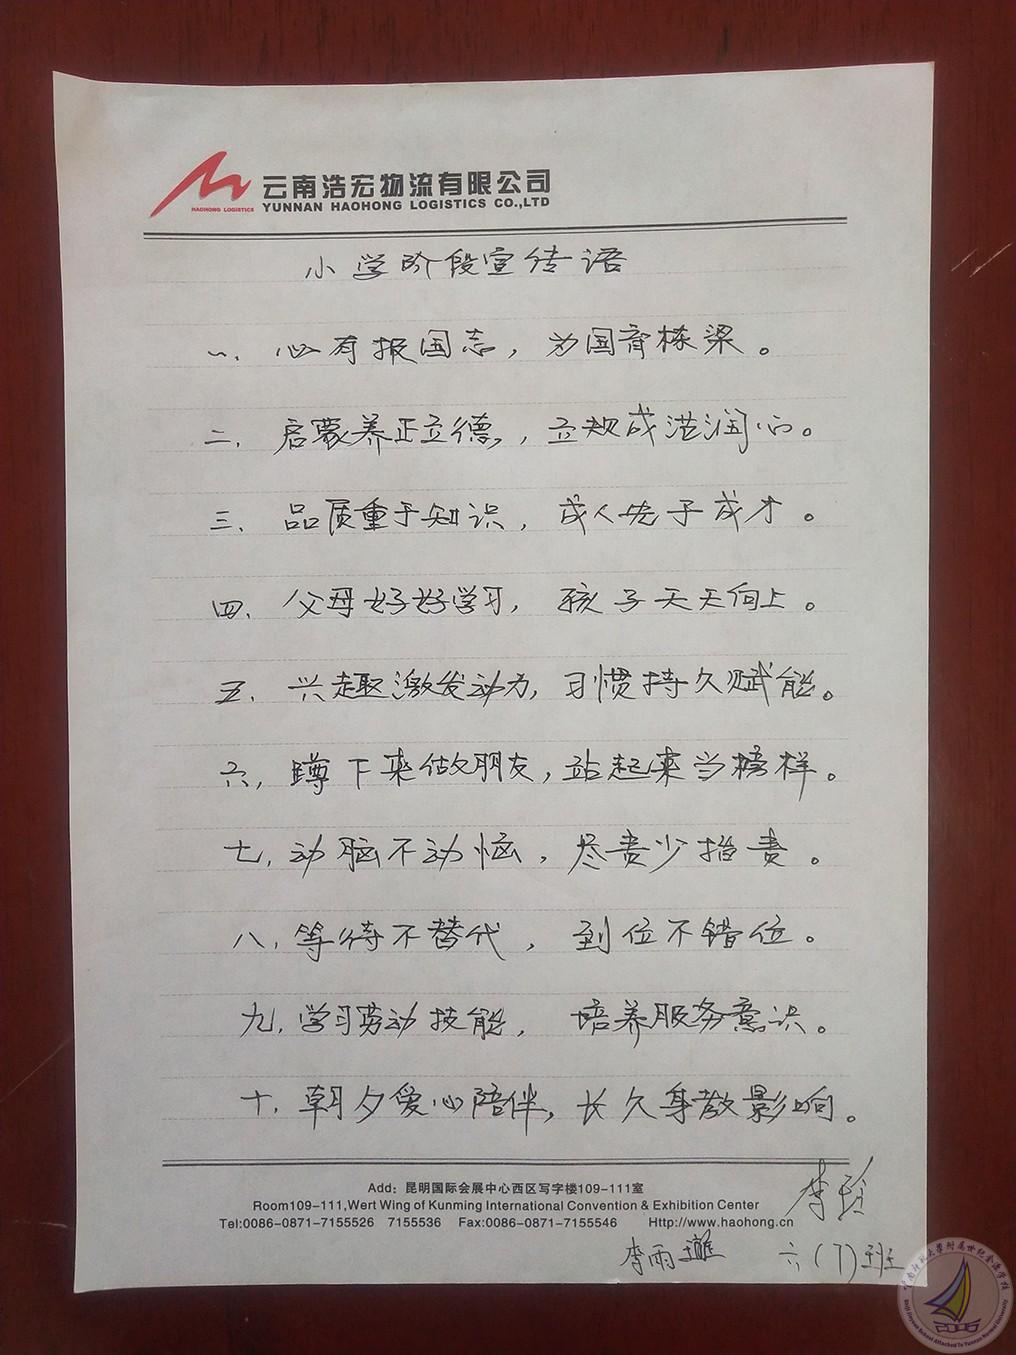 云南浩宏物流有限公司
HAOHONG LOGISTICS
YUNNAN HAOHONG LOGISTICS CO.,LTD
小学阶段宣传语
一、心有报国志，为国育栋梁。
二、启蒙养正立德，立规成范润心。
三、品质重于知识，成人先于成才。
四、父母好好学习，孩子天天向上。
五、兴趣激发动力，习惯持久赋能。
六、蹲下来做朋友，站起来当榜样。
七、动脑不动恼，尽责少指责。
八、等待不替代，到位不错位。
九、学习劳动技能，培养服务意识。
十、朝夕爱心陪伴，长久身教影响。
Add：昆明国际会展中心西区写字楼109-111室
Room109-111,Wert Wing of Kunming International Convention & Exhibition Center
Tel:0086-0871-7155526 7155536 Fax:0086-0871-7155546 Http://www.haohong.cn
李玲
李雨 六(7)班